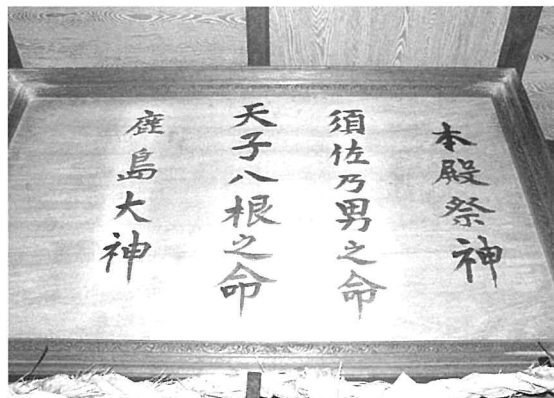 本殿祭神
須佐乃男之命
天子八根之命
鹿島大神